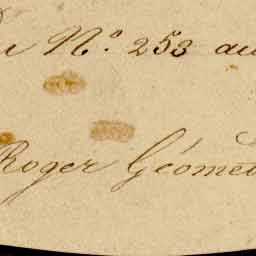 Nº. 253 au
Roger Géomet